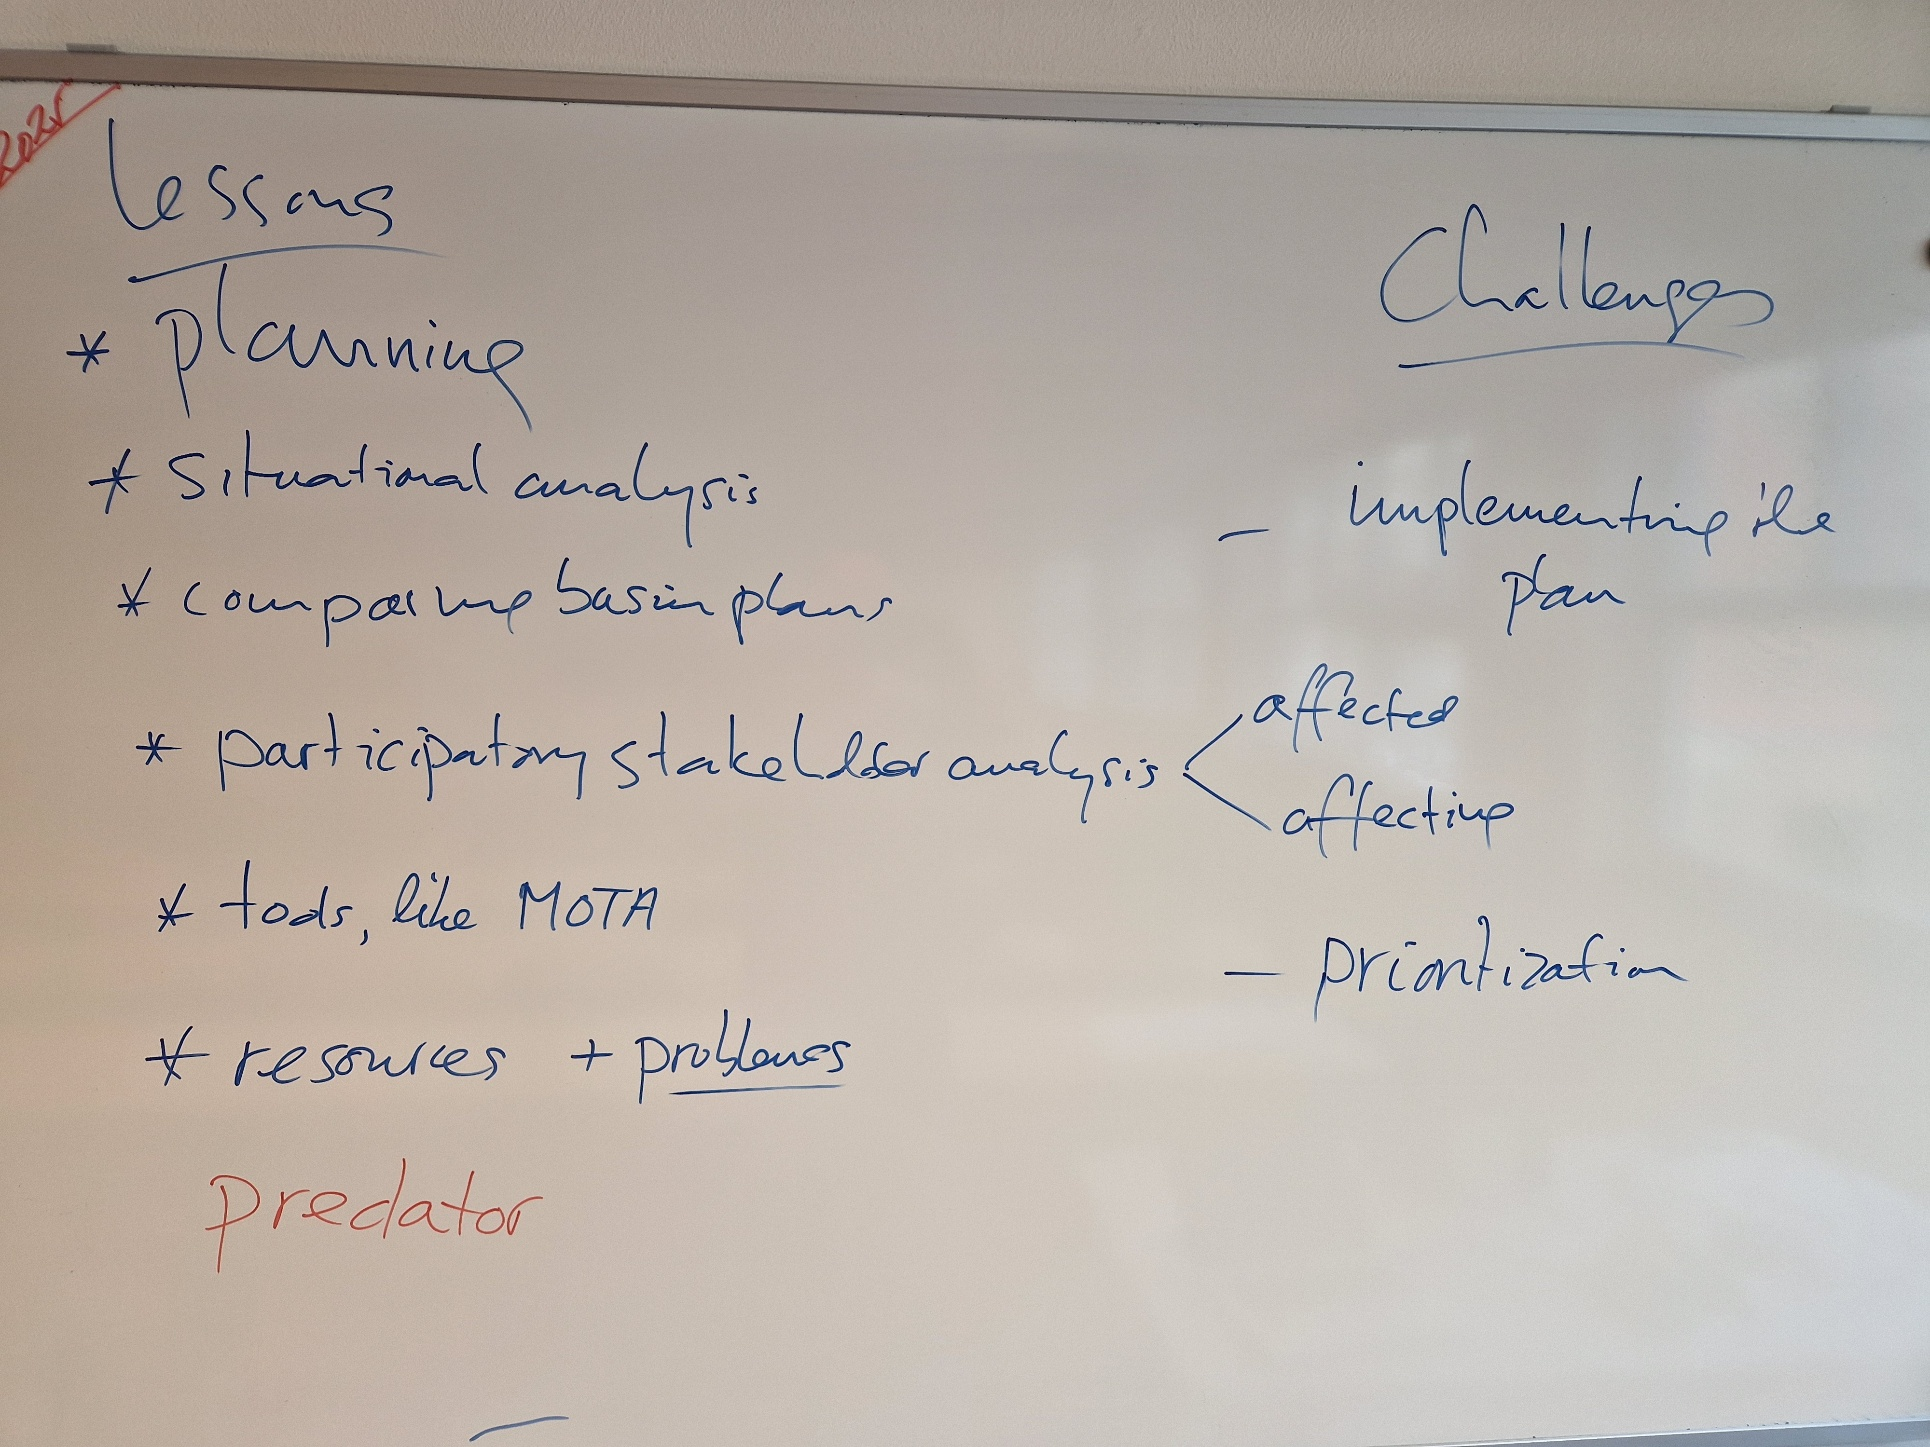 2025
Lessons
* planning
* situational analysis
* comparing basin plans
* participatory stakeholder analysis
affected
affecting
* tools, like MOTA
* resources + problems
predator
Challenges
- implementing the
plan
- prioritization